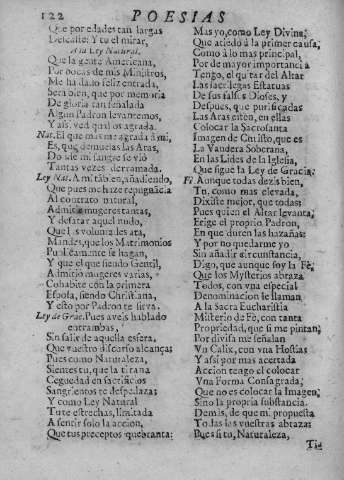 122 POESIAS
Que por edades tan largas
Descaste: Y tu el mirar,
A la Ley Natural,
Que la gente Americana,
Por bocas de mis Ministros,
Me ha dado feliz entrada,
Será bien, que por memoria
De gloria tan señalada
Algun Padron levantemos,
Y assi, ved qual os agrada.
Nat. El que mas me agrada à mi,
Es, que demuelas las Aras,
Do de mi sangre se viò
Tantas vezes derramada.
Ley Nat. A mi tãbien, añadiendo,
Que pues me haze repugnãcia
Al contrato natural,
Admitir mugeres tantas,
Y desatar aquel nudo,
Que las voluntades ata,
Mandes, que los Matrimonios
Publicamente se hagan,
Y que el que siendo Gentil,
Admitiò mugeres varias,
Cohabite con la primera
Esposa, siendo Christiana,
Y esto por Padron te sirva.
Ley de Grac. Pues aveis hablado
entrambas,
Sin salir de aquella esfera,
Que vuestro discurso alcança;
Pues como Naturaleza,
Sientes tu, que la tirana
Ceguedad en sacrificios
Sangrientos te despedaza;
Y como Ley Natural
Tu te estrechas, limitada
A sentir solo la accion,
Que tus preceptos quebranta:
Mas yo, como Ley Divina,
Que atiendo à la primer causa,
Como à lo mas principal,
Por de mayor importancia
Tengo, el quitar del Altar
Las sacrilegas Estatuas
De sus falsos Dioses, y
Despues, que purificadas
Las Aras estèn, en ellas
Colocar la Sacrosanta
Imagen de Christo, que es
La Vandera Soberana,
En las Lides de la Iglesia,
Que sigue la Ley de Gracia.
Fè Aunque todas dezis bien,
Tu, como mas elevada,
Dixiste mejor, que todas:
Pues quien el Altar levanta,
Erige el proprio Padron,
En que duren las hazañas:
Y por no quedarme yo
Sin añadir circunstancia,
Digo, que aunque soy la Fè,
Que los Mysterios abraza
Todos, con vna especial
Denominacion le llaman
A la Sacra Eucharistia
Misterio de Fè, con tanta
Propriedad, que si me pintan,
Por divisa me señalan
Vn Caliz, con vna Hostias
Y assi por mas acertada
Accion tengo el colocar
Vna Forma Consagrada,
Que no es colocar la Imagen,
Sino la propria substancia.
Demàs, de que mi propuesta
Todas las vuestras abraza:
Pues si tu, Naturaleza,
Tie